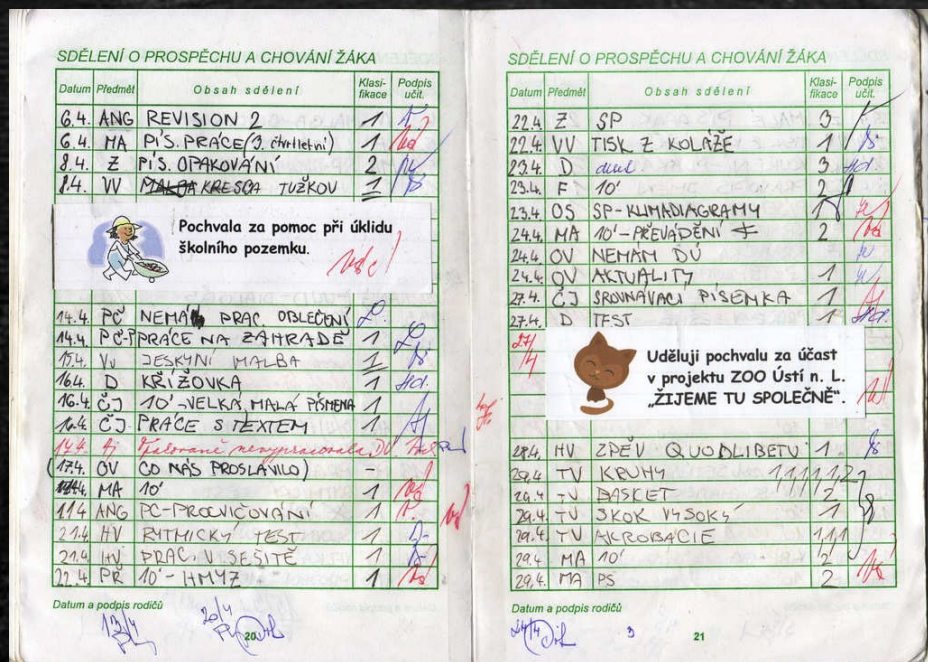 SDĚLENÍ O PROSPĚCHU A CHOVÁNÍ ŽÁKA
Datum Předmět Obsah sdělení Klasifikace Podpis učit.
6.4. ANG REVISION 2 1
6.4. MA PÍS. PRÁCE (3. čtvrtletní) 1
8.4. Z PÍS. OPAKOVÁNÍ 2
8.4. VV KRESBA TUŽKOU 1
Pochvala za pomoc při úklidu
školního pozemku.
14.4. PČ NEMÁ PRAC OBLEČENÍ
14.4. PČ-P PRÁCE NA ZAHRADĚ 1
15.4. VV JESKYNÍ MALBA 1
16.4. D KŘÍŽOVKA 1
16.4. ČJ 10' -VELKÁ, MALÁ PÍSMENA 1
16.4. ČJ PRÁCE S TEXTEM 1
17.4. Aj Opakovaně nevypracovala DÚ
(17.4. OV CO NÁS PROSLAVILO) -
MA 10' 1
ANG PC-PROCVIČOVÁNÍ 1
21.4. HV RYTMICKÝ TEST 1
21.4. HV PRÁC. V SEŠITĚ 1
22.4. PŘ 10' - HMYZ 1
Datum a podpis rodičů
13/4 20/4
20
SDĚLENÍ O PROSPĚCHU A CHOVÁNÍ ŽÁKA
Datum Předmět Obsah sdělení Klasifikace Podpis učit.
22.4. Z SP 3
22.4. VV TISK Z KOLÁŽE 1
23.4. D 3
23.4. F 10' 2
23.4. OS SP-KLIMADIAGRAMY 1
24.4. MA 10'-PŘEVÁDĚNÍ 2
24.4. OV NEMÁM DÚ
24.4. OV AKTUALITY 1
27.4. ČJ SROVNÁVACÍ PÍSEMKA 1
27.4. D TEST 1
27/4
Uděluji pochvalu za účast
v projektu ZOO Ústí n. L.
„ŽIJEME TU SPOLEČNĚ“.
28.4. HV ZPĚV QUODLIBETU 1
29.4. TV KRUHY 1,1,1,1,2
29.4. TV BASKET 2
29.4. TV SKOK VYSOKÝ 1
29.4. TV AKROBACIE 1,1,1
29.4. MA 10' 2
29.4. MA PŠ 2
Datum a podpis rodičů
21